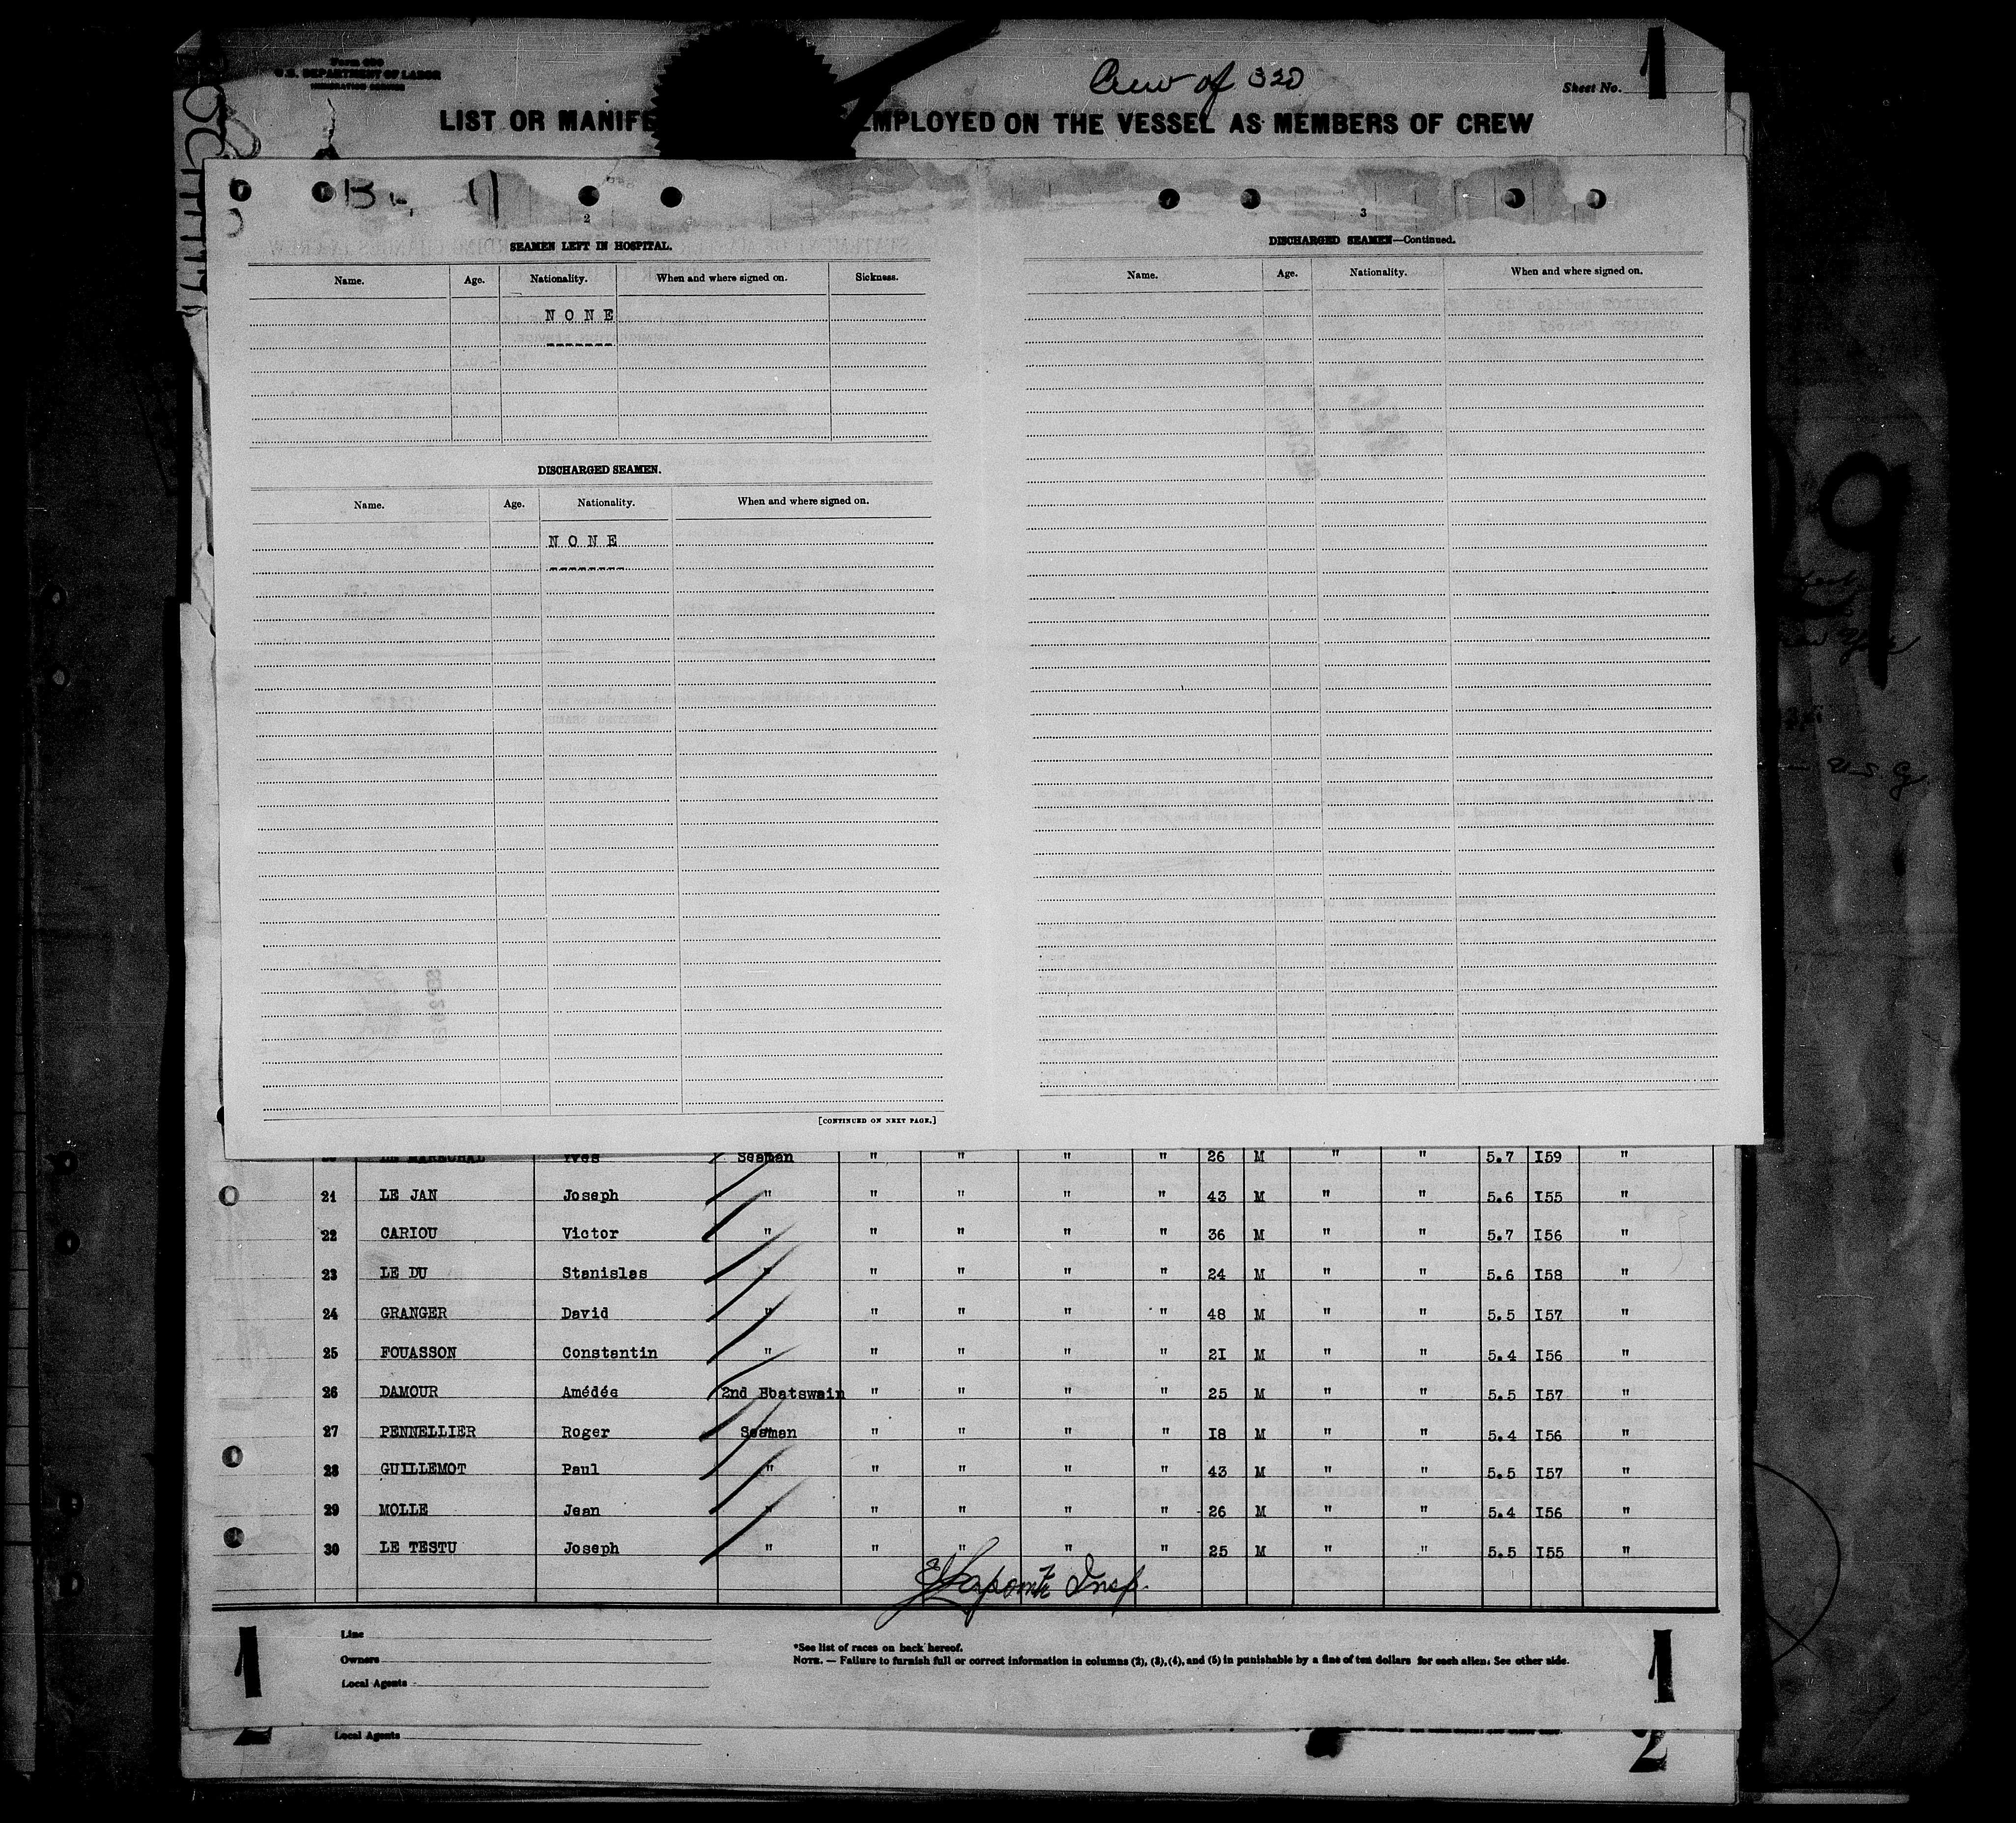 Form 680
U.S. DEPARTMENT OF LABOR
IMMIGRATION SERVICE
Crew of 320
Sheet No. 1
LIST OR MANIFE EMPLOYED ON THE VESSEL AS MEMBERS OF CREW
2
SEAMEN LEFT IN HOSPITAL.
Name. Age. Nationality. When and where signed on. Sickness.
NONE
-------
DISCHARGED SEAMEN.
Name. Age. Nationality. When and where signed on.
NONE
--------
[CONTINUED ON NEXT PAGE.]
3
DISCHARGED SEAMEN—Continued.
Name. Age. Nationality. When and where signed on.
LE MARECHAL Yves Seaman " " " " 26 M " " 5.7 I59 "
21 LE JAN Joseph " " " " " 43 M " " 5.6 I55 "
22 CARIOU Victor " " " " " 36 M " " 5.7 I56 "
23 LE DU Stanislas " " " " " 24 M " " 5.6 I58 "
24 GRANGER David " " " " " 48 M " " 5.5 I57 "
25 FOUASSON Constantin " " " " " 2I M " " 5.4 I56 "
26 DAMOUR Amédée 2nd Boatswain " " " " 25 M " " 5.5 I57 "
27 PENNELLIER Roger Seaman " " " " I8 M " " 5.4 I56 "
28 GUILLEMOT Paul " " " " " 43 M " " 5.5 I57 "
29 MOLLE Jean " " " " " 26 M " " 5.4 I56 "
30 LE TESTU Joseph " " " " " 25 M " " 5.5 I55 "
Insp.
1 Line 1
Owners
Local Agents
*See list of races on back hereof.
NOTE. — Failure to furnish full or correct information in columns (2), (3), (4), and (5) in punishable by a fine of ten dollars for each alien. See other side.
Local Agents
2